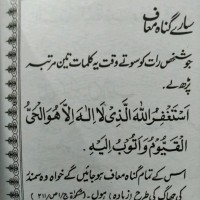 سارے گناہ معاف
جو شخص رات کو سوتے وقت یہ کلمات تین مرتبہ
پڑھ لے۔
اَسْتَغْفِرُ اللهَ الَّذِیْ لَا اِلٰهَ اِلَّا هُوَ الْحَیُّ
الْقَیُّوْمُ وَاَتُوْبُ اِلَیْهِ۔
اس کے تمام گناہ معاف ہو جائیں گے خواہ وہ سمندر
کی جھاگ کی طرح (زیادہ) ہوں۔ (مشکوٰۃ ج۱/ص۲۱۱)